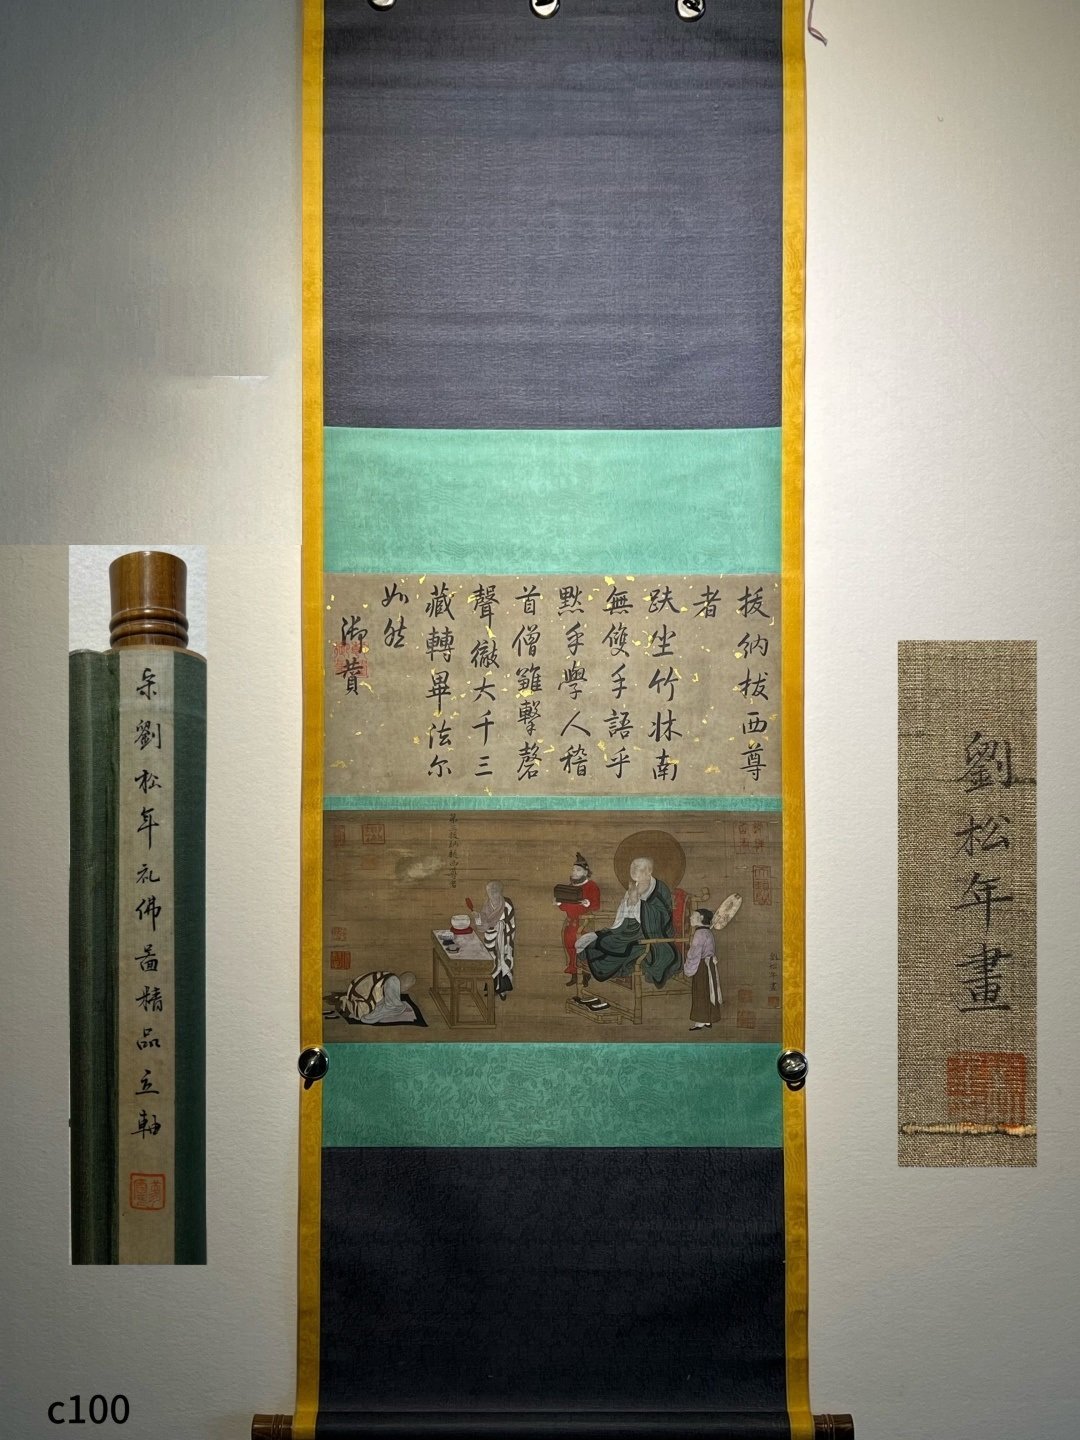 拔納拔西尊
者
趺坐竹牀南
無雙手語乎
默乎學人稽
首僧雛擊磬
聲徹大千三
藏轉畢法尔
如然
御贊
劉松年畫
宋劉松年礼佛畫精品立軸
劉松年畫
c100